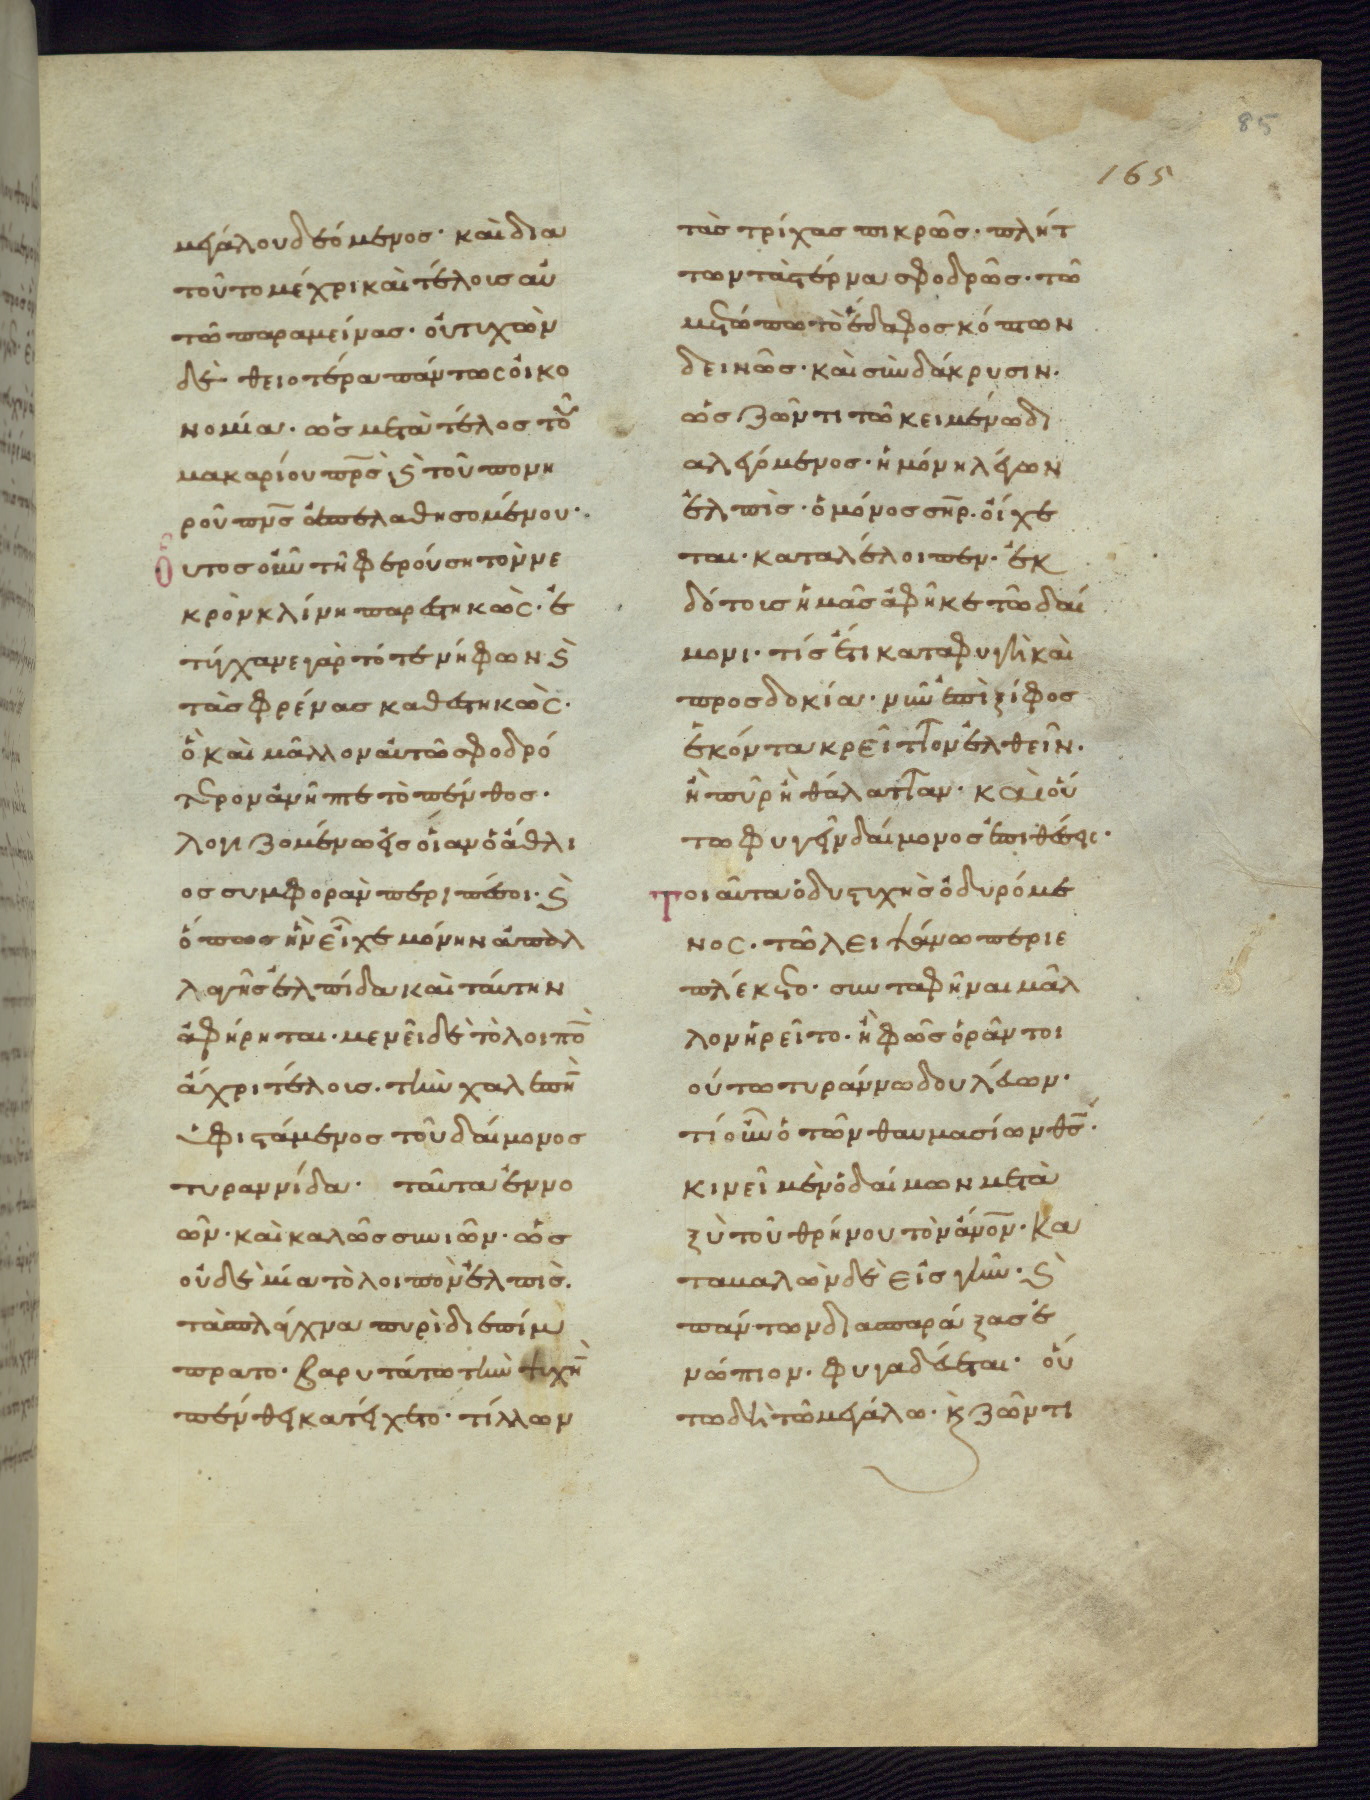 85
165
μεγάλου δεόμενος· καὶ δια
τοῦτο μέχρι καὶ τέλους αὐ
τῶ παραμείνας· οὐ τυχὼν
δέ· θειοτέρα πάντως οἰκο
νομία· ὡς μετὰ τέλος τοῦ
μακαρίου πρς̄ ϗ τοῦ πονη
ροῦ πνς̄ ἀπελαθησομένου·
Οὗτος οὖν τῆ φερούση τὸν νε
κρὸν κλίνη παρεστηκὼς· ἐ
τύγχανε γὰρ τότε νήφων ϗ
τὰς φρένας καθεστηκὼς·
ὃ καὶ μᾶλλον αὐτῶ σφοδρό
τερον ἀνῆπτε τὸ πένθος·
λογιζομένω εἰς οἵαν ὁ ἄθλι
ος συμφορὰν περιπέσοι· ϗ
ὅπως ἣν εἶχε μόνην ἀπαλ
λαγῆς ἐλπίδα καὶ ταύτην
ἀφήρηται· μενεῖ δὲ τὸ λοιπὸ
ἄχρι τέλους· τὴν χαλεπὴ
ὑφιστάμενος τοῦ δαίμονος
τυραννίδα· ταῦτα ἐννο
ῶν· καὶ καλῶς συνιῶν· ὡς
οὐδὲ μία τὸ λοιπὸν ἐλπὶς·
τὰ σπλάγχνα πυρὶ διεπίμ
πρατο· βαρυτάτω τὴν ψυχὴ
πένθει κατείχετο· τίλλων
τὰς τρίχας πικρῶς· πλήτ
των τὰ στέρνα σφοδρῶς· τῶ
μετώπω τὸ ἔδαφος κόπτων
δεινῶς· καὶ σὺν δάκρυσιν·
ὡς ζῶντι τῶ κειμένω δι
αλεγόμενος· ἡ μόνη λέγων
ἐλπὶς· ὁ μόνος σηρ̄· οἴχε
ται· καταλέλοιπεν· ἐκ
δότους ἡμᾶς ἀφῆκε τῶ δαί
μονι· τίς ἔτι καταφυγὴ καὶ
προσδοκία· νῦν ἐπὶ ξίφος
ἑκόντα κρεῖττον ἐλθεῖν·
ἢ πῦρ ἢ θάλατταν· καὶ οὕ
τω φυγεῖν δαίμονος ἐπιθέσεις·
Τοιαῦτα ὁ δυστυχὴς ὀδυρόμε
νος· τῶ λειψάνω περιε
πλέκετο· συνταφῆναι μᾶλ
λον ἡρεῖτο· ἢ φῶς ὁρᾶν τοι
ούτω τυράννω δουλεύων·
τί οὖν ὁ τῶν θαυμασίων θς̄·
κινεῖ μὲν ὁ δαίμων μετα
ξὺ τοῦ θρήνου τὸν ἄνον̄· κα
ταβαλὼν δὲ εἰς γῆν· ϗ
πάντων διασπαράξας ἐ
νώπιον· φυγαδεύεται· οὕ
τω δὴ τῶ μεγάλω· ϗ ζῶντι